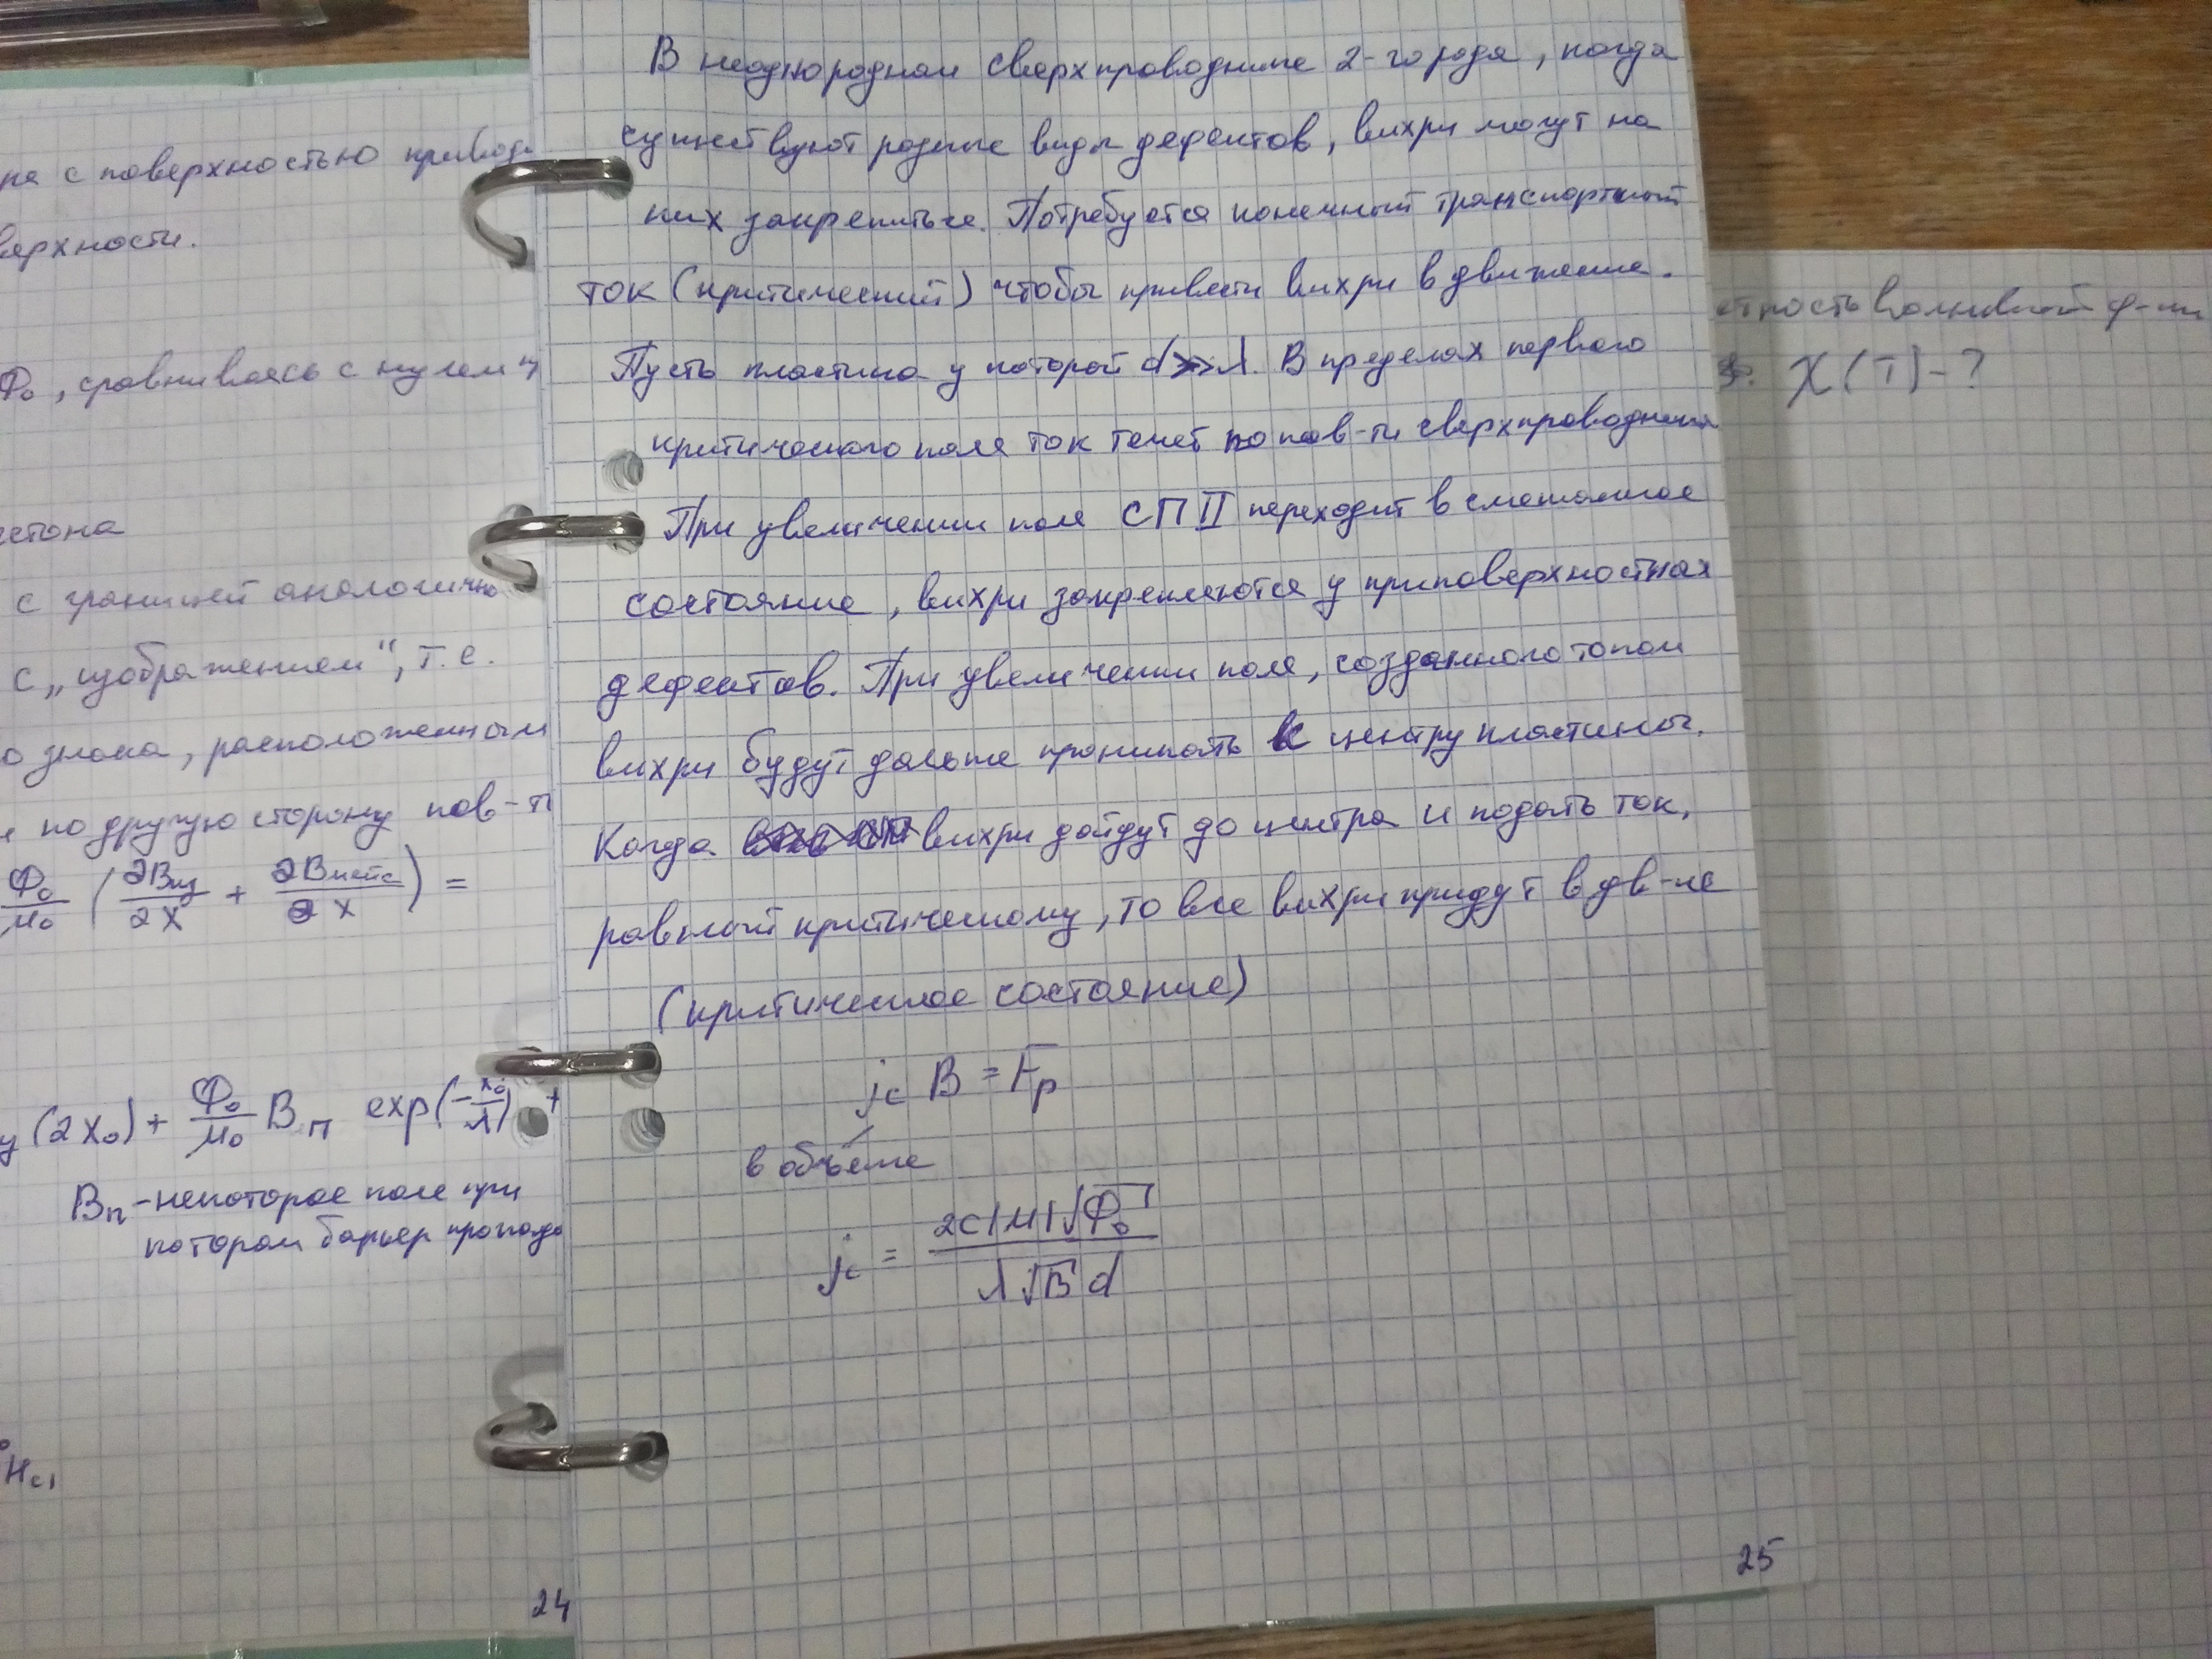 с поверхностью
верхности.
Φ₀, сравниваясь с нулем
с границей аналогично
с „изображением“, т.е.
о знака, расположенным
по другую сторону пов-ти
Φ₀/μ₀ (∂Bиз/∂x + ∂Bмейс/∂x) =
(2x₀) + Φ₀/μ₀ Bп exp(-x₀/λ) +
Bп - некоторое поле при
котором барьер пропада
Hc1
24
В неоднородном сверхпроводнике 2-го рода, когда
существуют разные виды дефектов, вихри могут на
них закрепиться. Потребуется конечный транспортный
ток (критический) чтобы привести вихри в движение.
Пусть пластина у которой d>>λ. В пределах первого
критического поля ток течет по пов-ти сверхпроводника
При увеличении поля СП II переходит в смешанное
состояние, вихри закрепляются у приповерхностных
дефектов. При увеличении поля, созданного током
вихри будут дальше проникать к центру пластины.
Когда вихри дойдут до центра и подать ток,
равный критическому, то все вихри придут в дв-ие
(критическое состояние)
jc B = Fp
в объёме
jc = 2c|M|√Φ₀ / λ√B d
25
волновой ф-ии
χ(T)-?